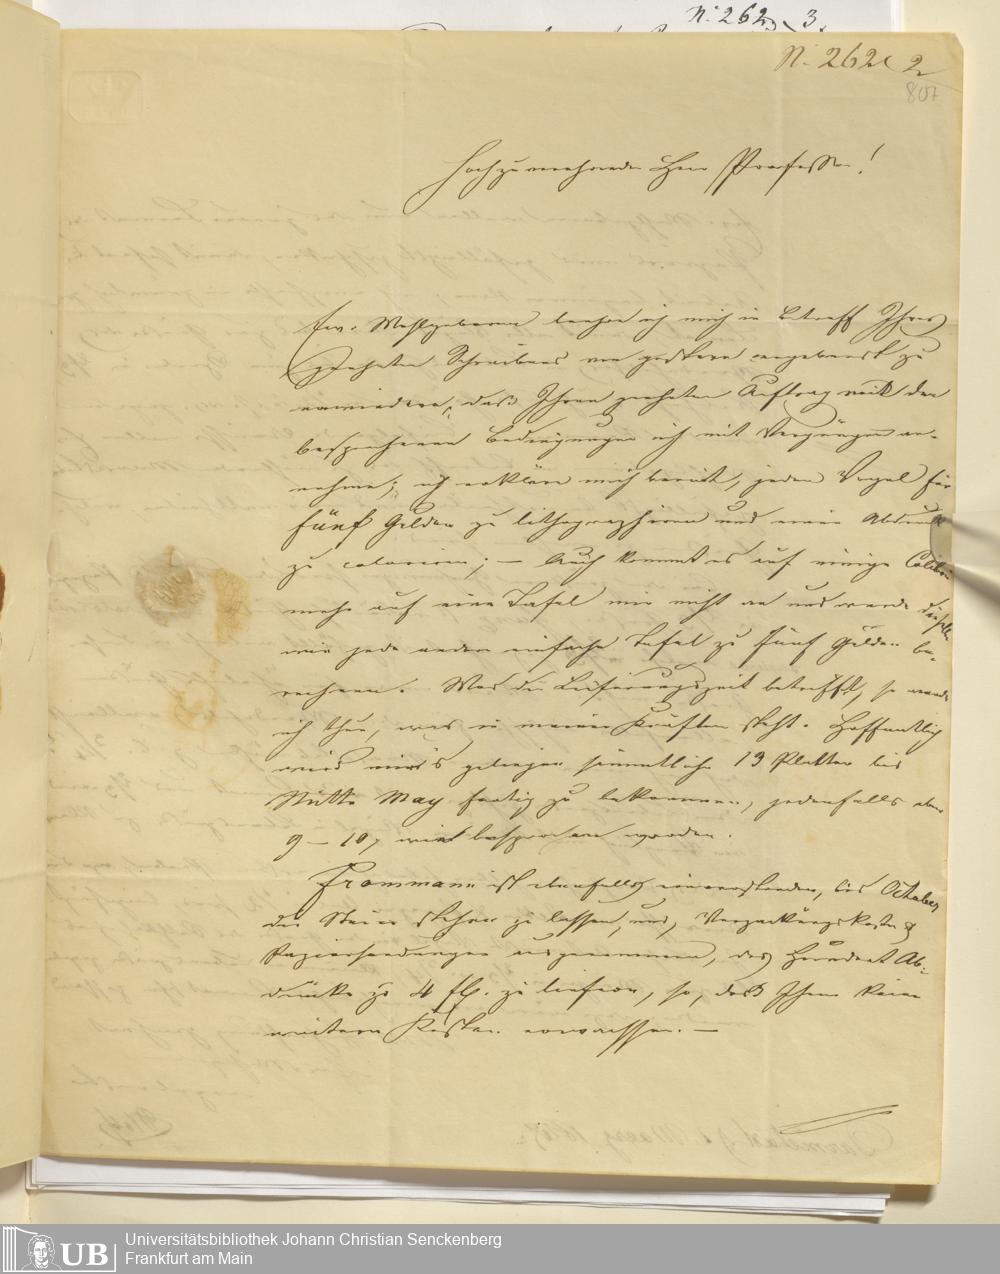 N. 262, 3.
N. 262, 2
807
Hochzuverehrender Herr Professor!
Ew. Wohlgeboren beehre ich mich in Betreff Ihres
geehrten Schreibens von gestern ergebenst zu
erwiedern, daß Ihren geehrten Auftrag mit den
besprochenen Bedingungen ich mit Vergnügen an-
nehme; ich erkläre mich bereit, jeden Vogel für
fünf Gulden zu lithographiren und einen Abdruck
zu coloriren; – Auch kommt es auf einige Colibri
mehr auf eine Tafel mir nicht an und werde dieselbe
wie jede andere einfache Tafel zu fünf Gulden be-
rechnen. Was die Lieferungszeit betrifft, so werde
ich thun, was in meinen Kräften steht. Hoffentlich
wird mir's gelingen sämmtliche 19 Platten bis
Mitte May fertig zu bekommen, jedenfalls aber
9–10, wie besprochen worden.
Frommann ist ebenfalls einverstanden, bis October
die Steine stehen zu lassen, und, Verpackungskosten &
Papiersendungen ausgenommen, das Hundert Ab-
drücke zu 4 fl. zu liefern, so, daß Ihnen keine
weitern Kosten erwachsen. –
UB
Universitätsbibliothek Johann Christian Senckenberg
Frankfurt am Main